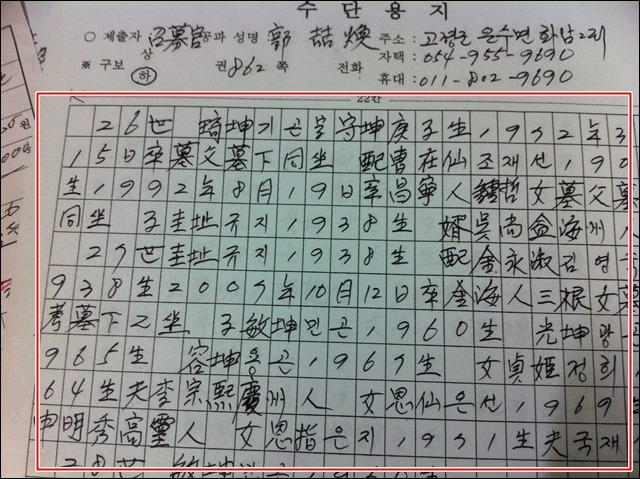 수 단 용 지
○ 제출자 공파 성명 郭 喆 煥 주소 : 고령군 운수면 화암2리
상 자택 : 054-955-9690
※ 구보 하 권 862 쪽 전화
휴대 : 011-802-9690
22칸
26世 琦坤기곤 字 坤 庚子生 19 2年3
15日卒墓父墓下同坐 配曹在仙조재선 190
生1992年8月19日卒昌寧人 哲女墓父墓
同坐 子圭址규지1938生 婿吳尚 海州人
27世圭址규지1938生 配金永淑김영숙
938生200 年10月12日卒金海人三根女墓
考墓下乙坐 子敏坤민곤1960生 光坤광
965生 容坤용곤196 生 女貞姬정희
64生夫李宗熙慶州人 女恩仙은선1969
申明秀高靈人 女恩指은지19 1生夫국재
28世 敏坤